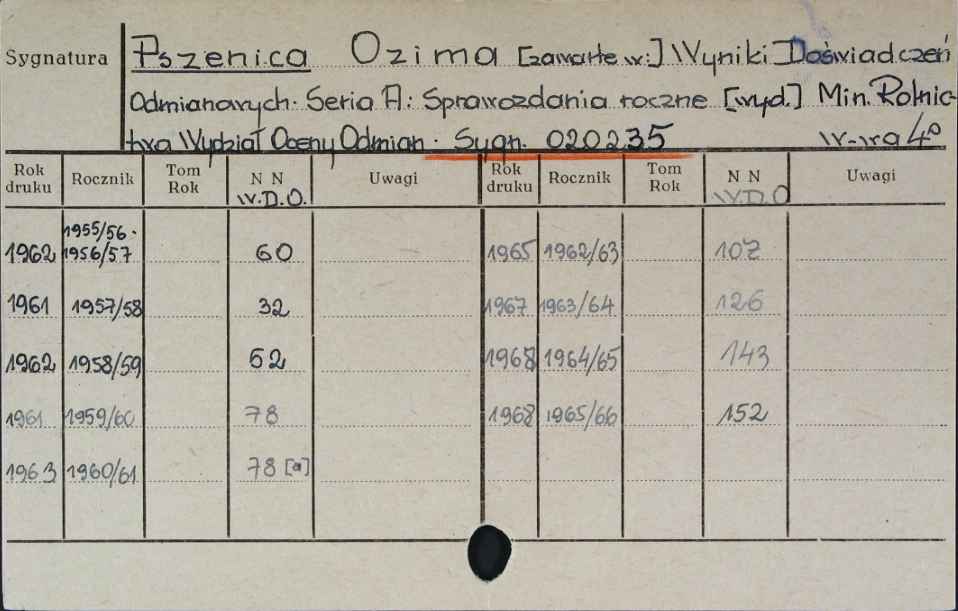 Sygnatura
Pszenica Ozima [zawarte w:] Wyniki Doświadczeń
Odmianowych. Seria A: Sprawozdania roczne [wyd.] Min. Rolnic-
twa Wydział Oceny Odmian. Sygn. 020235 W-wa 4°
Rok druku Rocznik Tom Rok N N W.D.O. Uwagi Rok druku Rocznik Tom Rok N N W.D.O Uwagi
1955/56.
1962 1956/57 60 1965 1962/63 107
1961 1957/58 32 1967 1963/64 126
1962 1958/59 62 1968 1964/65 143
1961 1959/60 78 1968 1965/66 152
1963 1960/61 78 [a]